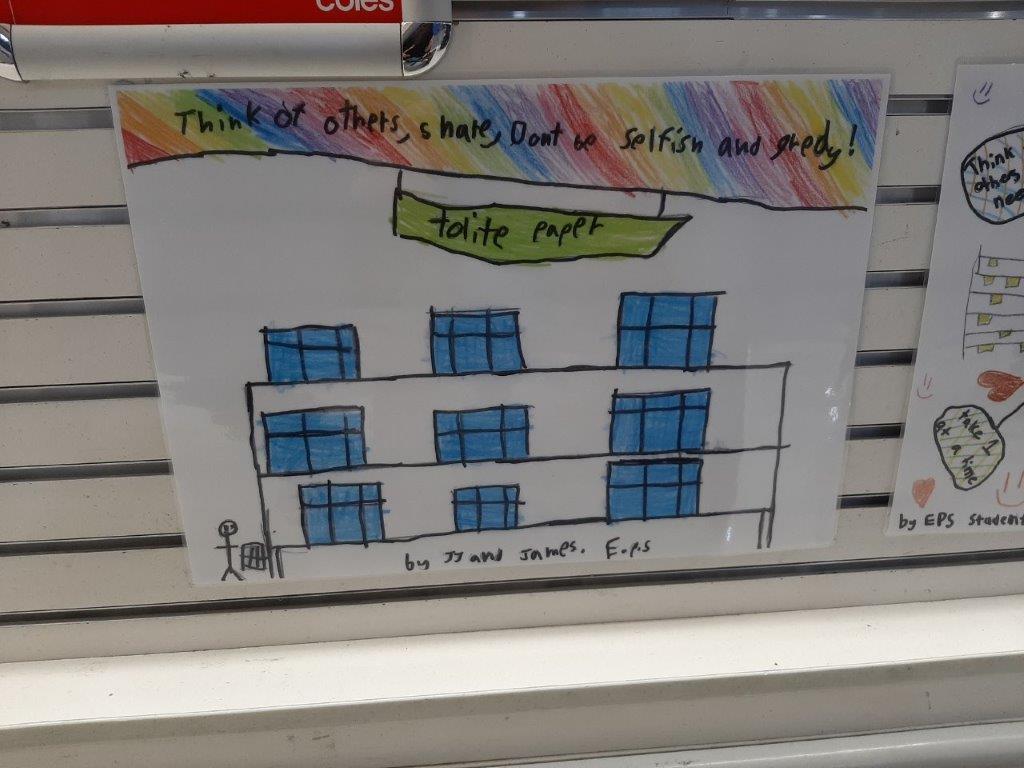 coles
Think of others, share, Dont be selfish and gredy!
tolite paper
by JJ and James. E.p.s
Think
others
nee
take 1
at a time
by EPS Student